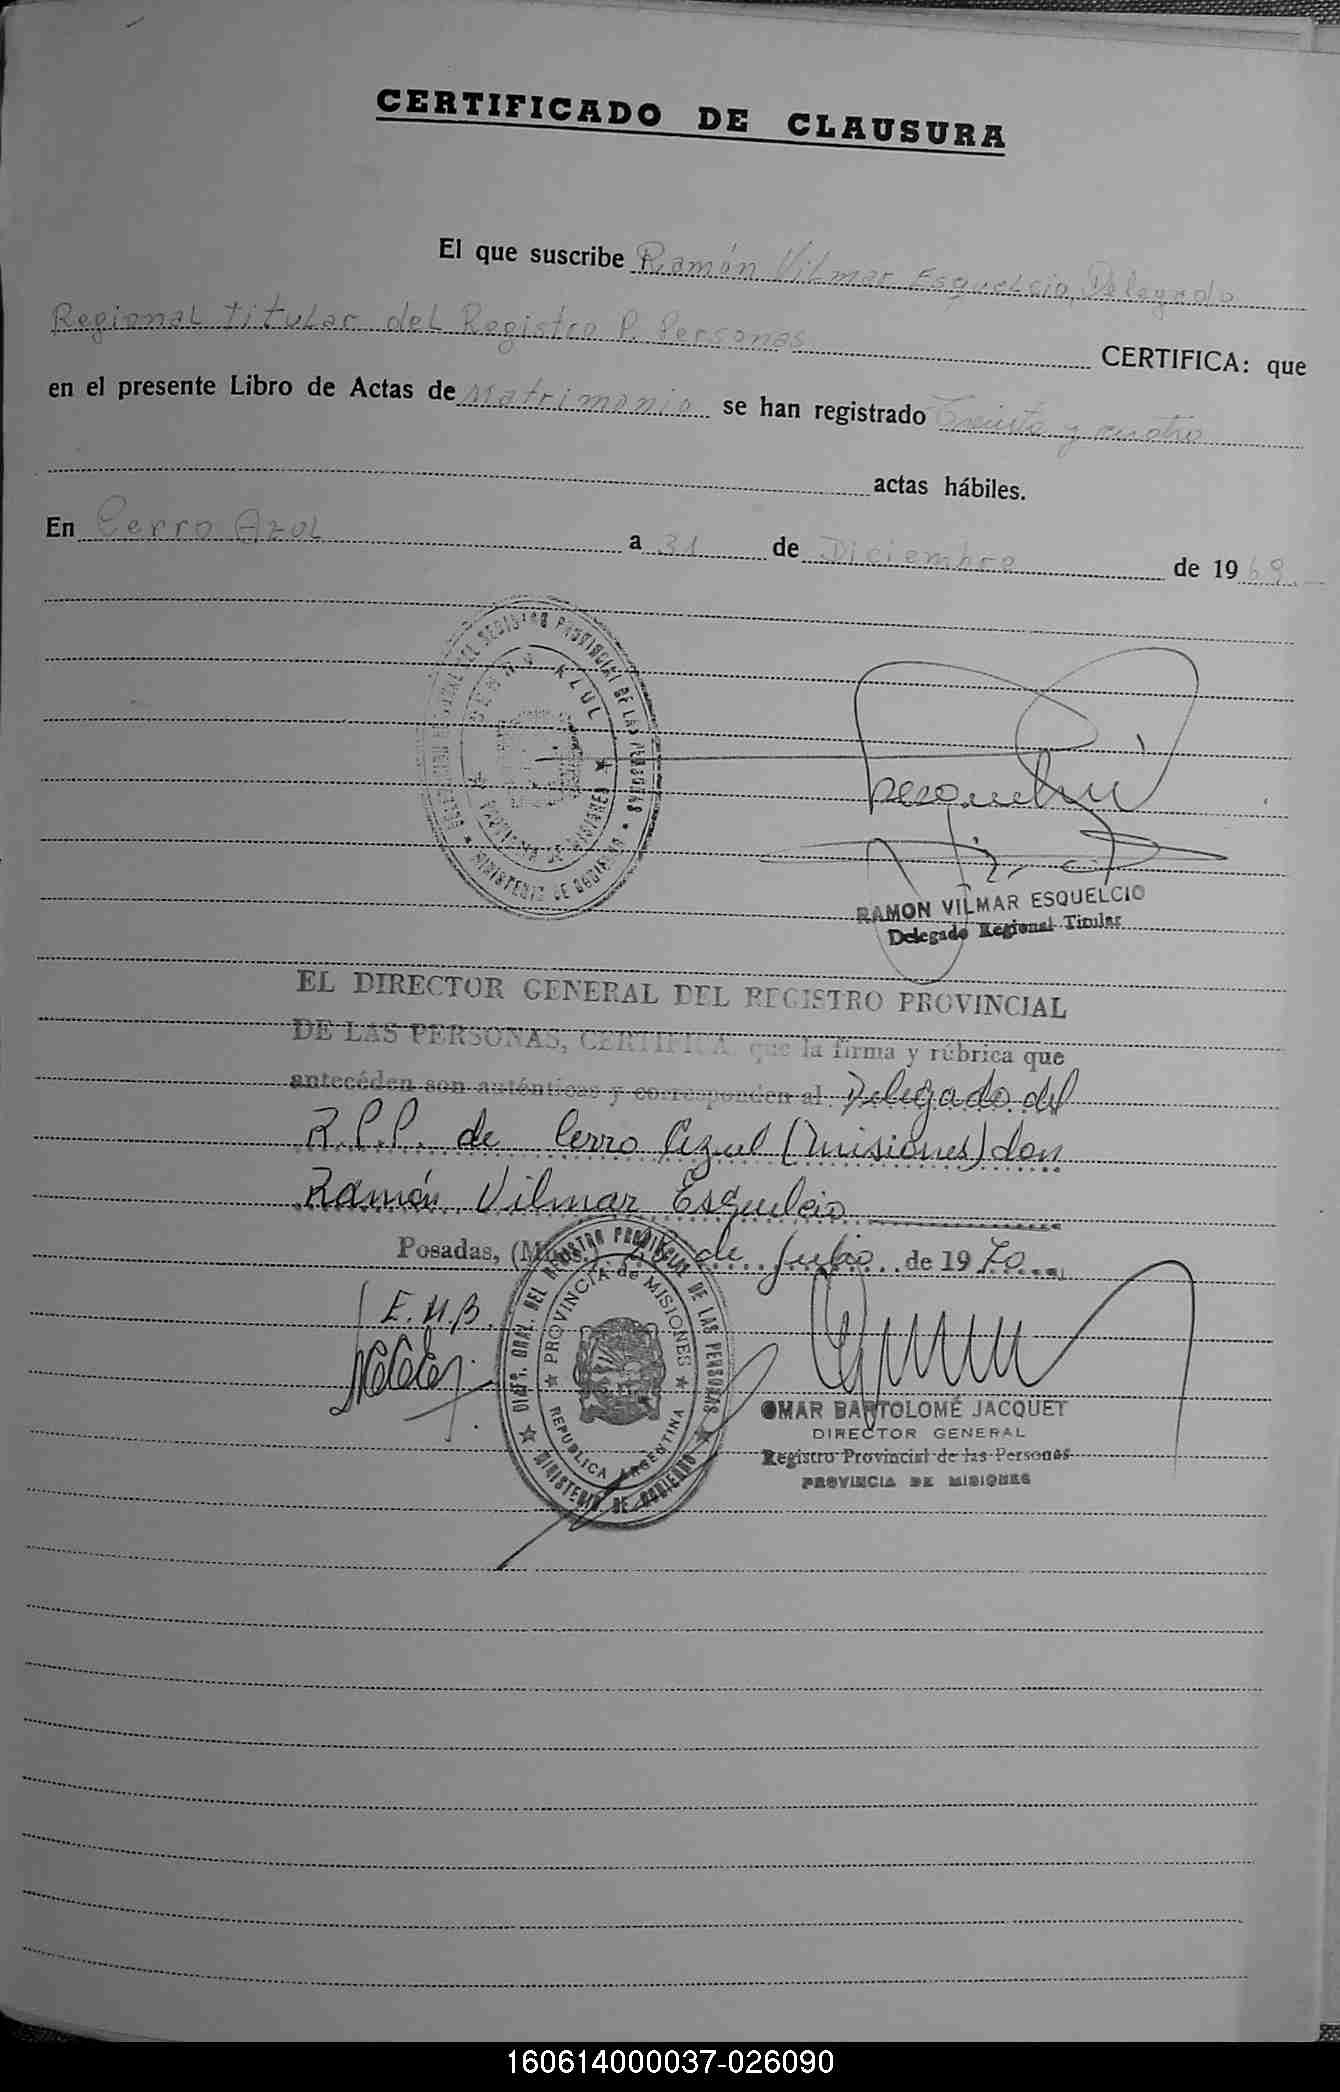 CERTIFICADO DE CLAUSURA
El que suscribe Ramón Vilmar Esquelcio, Delegado
Regional titular del Registro P. Personas CERTIFICA: que
en el presente Libro de Actas de Matrimonio se han registrado Treinta y cuatro
actas hábiles.
En Cerro Azul a 31 de Diciembre de 1969.-
REGISTRO PROVINCIAL DE LAS PERSONAS
MINISTERIO DE GOBIERNO
CERRO AZUL
PROVINCIA DE MISIONES
RAMON VILMAR ESQUELCIO
Delegado Regional Titular
EL DIRECTOR GENERAL DEL REGISTRO PROVINCIAL
DE LAS PERSONAS, CERTIFICA que la firma y rúbrica que
antecéden son auténticas y corresponden al Delegado del
R.P.P. de Cerro Azul (Misiones) don
Ramón Vilmar Esquelcio
Posadas, (Mnes.) de Julio de 1970
E.M.B.
DIREC. GRAL. DEL REGISTRO PROVINCIAL DE LAS PERSONAS
MINISTERIO DE GOBIERNO
PROVINCIA de MISIONES
REPUBLICA ARGENTINA
OMAR BARTOLOMÉ JACQUET
DIRECTOR GENERAL
Registro Provincial de las Personas
PROVINCIA DE MISIONES
160614000037-026090